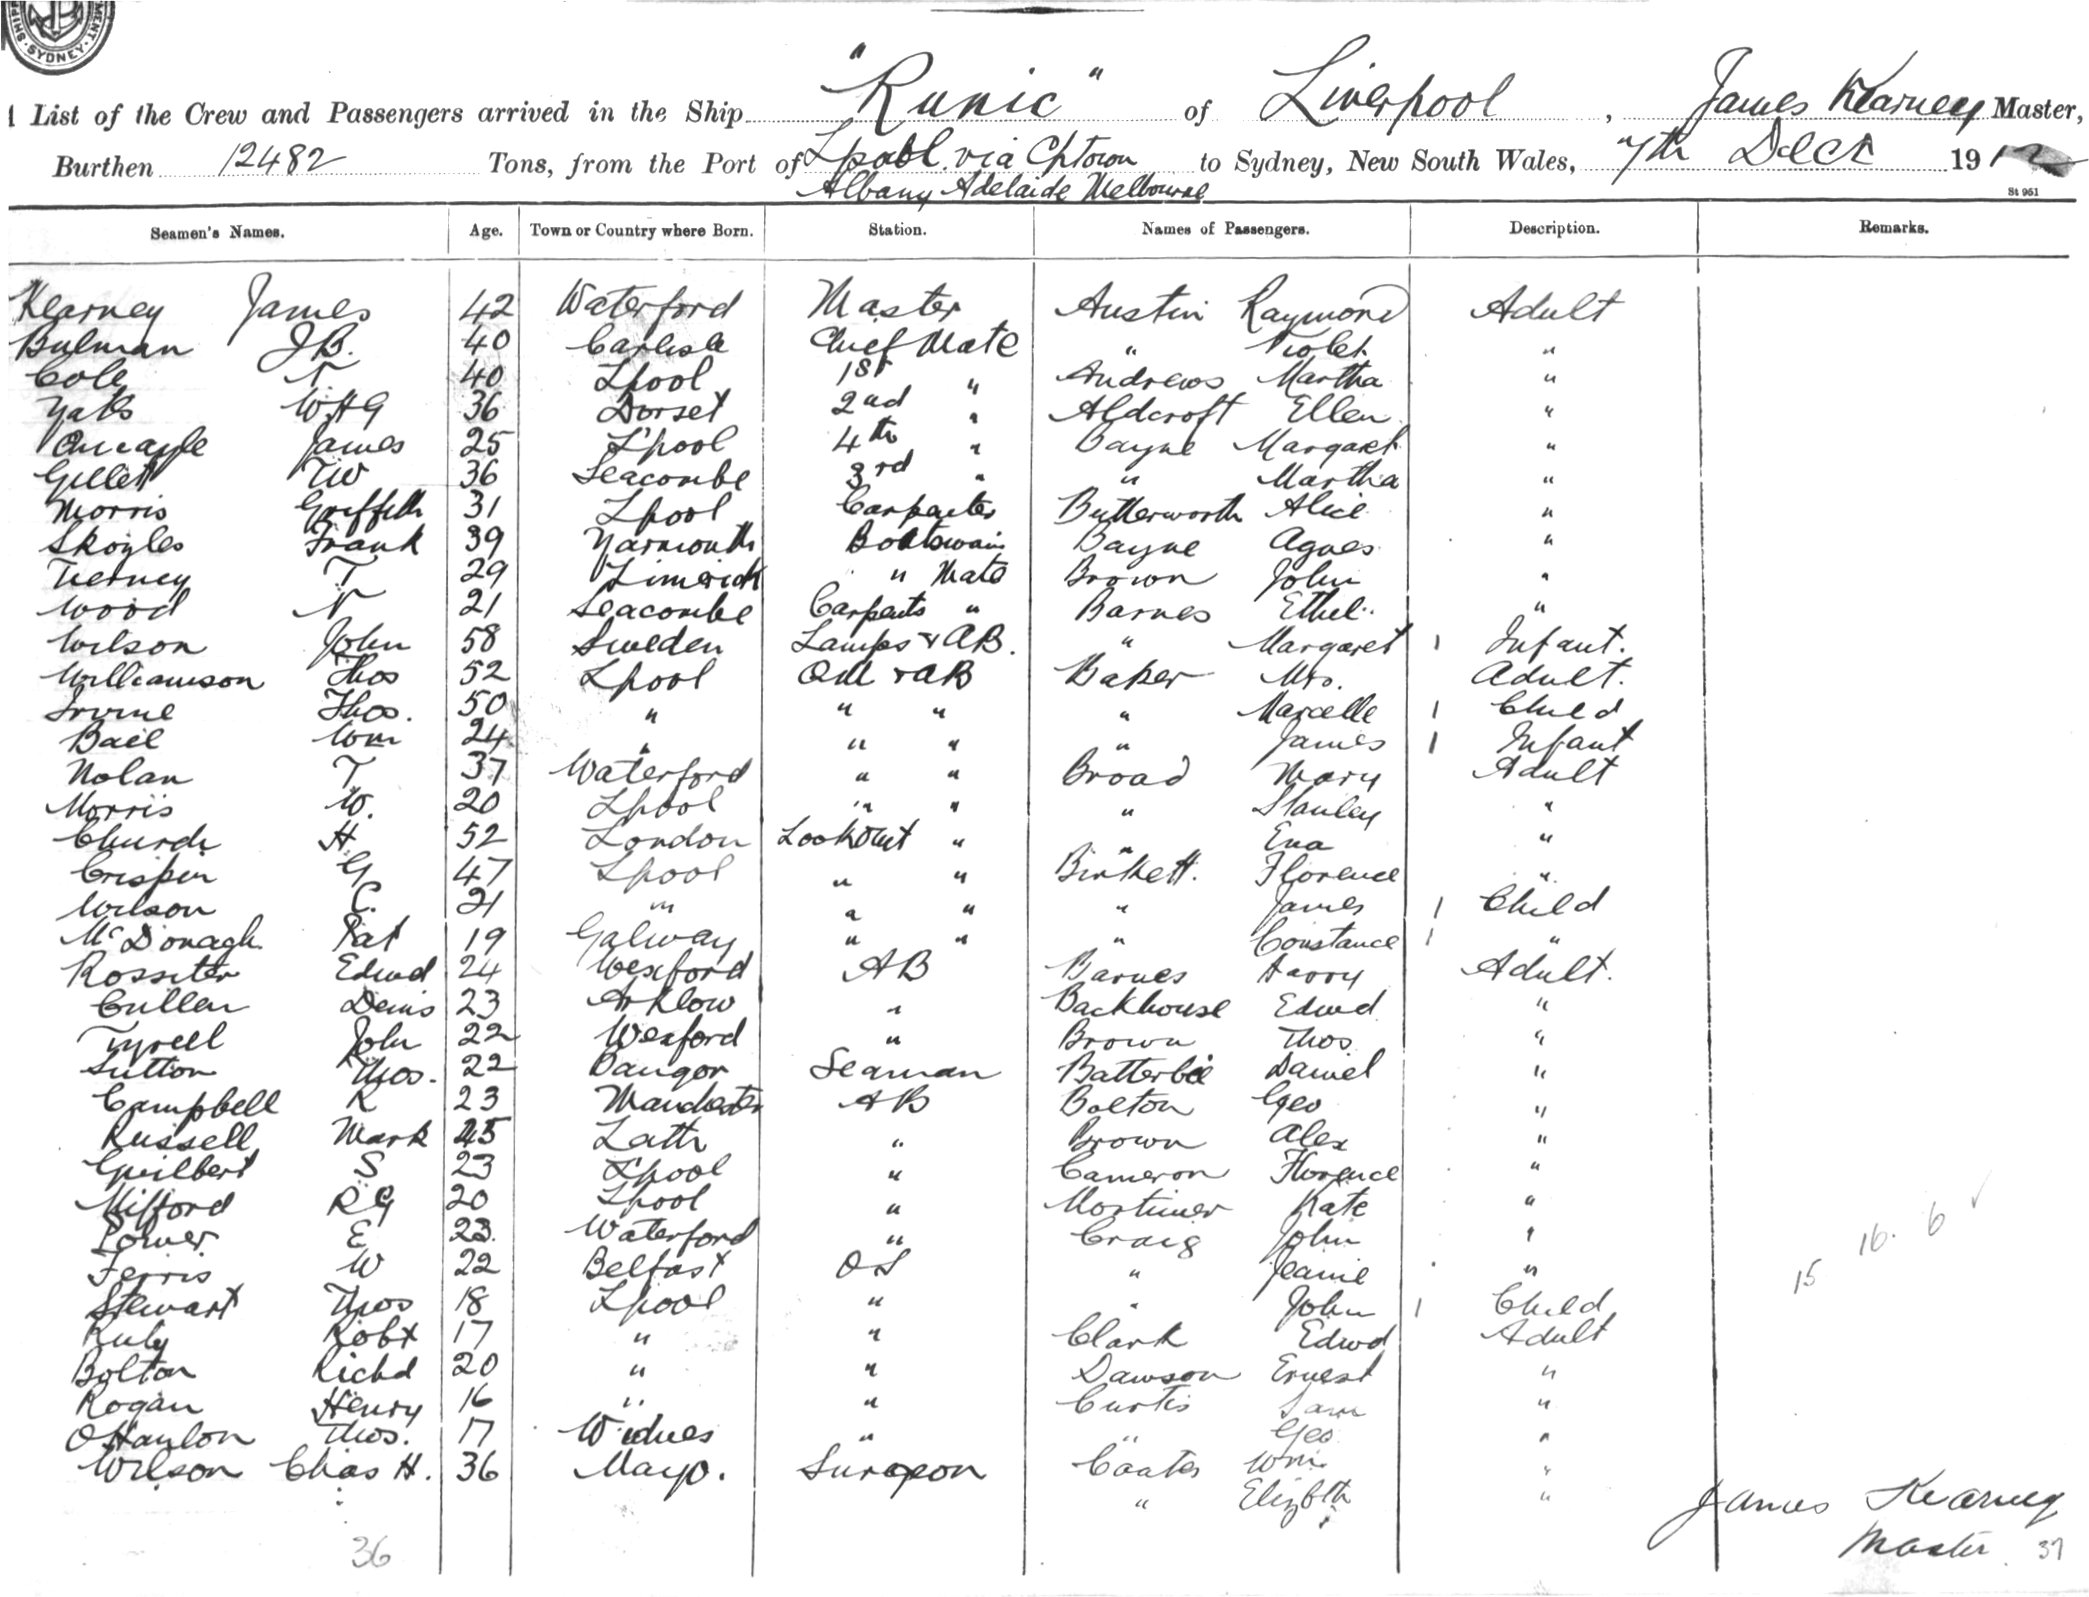 SYDNEY
"Runic"
1 List of the Crew and Passengers arrived in the Ship "Runic" of Liverpool, James Kearney Master,
Burthen 12482 Tons, from the Port of Lpool. via Cptown to Sydney, New South Wales, 7th Decr 1912
Albany Adelaide Melbourne
St 951
Seamen's Names. Age. Town or Country where Born. Station. Names of Passengers. Description. Remarks.
Kearney James 42 Waterford Master Austin Raymond Adult
Bulman J B. 40 Carlisle Chief Mate " Violet "
Cole 40 Lpool 1st " Andrews Martha "
Yates W H G 36 Dorset 2nd " Aldcroft Ellen "
James 25 L'pool 4th " Bayne Margaret "
Gillet T W 36 Seacombe 3rd " " Martha "
Morris Griffith 31 Lpool Carpenter Butterworth Alice "
Skoyles Frank 39 Yarmouth Boatswain Bayne Agnes "
Tierney T 29 Limerick " Mate Brown John "
Wood 21 Seacombe Carpents " Barnes Ethel "
Wilson John 58 Sweden Lamps & AB. " Margaret 1 Infant.
Williamson Thos 52 Lpool QM & AB Baker Mrs. Adult.
Irvine Thos. 50 " " " " Marcelle 1 Child
Bail Wm 24 " " " " James 1 Infant
Nolan T 37 Waterford " " Broad Mary Adult
Morris W. 20 Lpool " " " Stanley "
Church H 52 London Lookout " " Ena "
Crispin G 47 Lpool " " Birkett. Florence "
Wilson C. 21 " " " " James 1 Child
McDonagh. Pat 19 Galway " " " Constance 1 "
Rossiter Edwd 24 Wexford AB Barnes Harry Adult.
Cullen Denis 23 Arklow " Backhouse Edwd "
Tyrell John 22 Wexford " Brown Thos "
Sutton Thos. 22 Bangor Seaman Batterbee Daniel "
Campbell R 23 Manchester AB Bolton Geo "
Russell Mark 45 Lath " Brown Alex "
Guilbert S 23 L'pool " Cameron Florence "
Mifford R G 20 Lpool " Mortimer Kate "
Power E 23. Waterford " Craig John "
Ferris W 22 Belfast OS " Jeanie "
Stewart Thos 18 Lpool " " John 1 Child
Ruby Robt 17 " " Clark Edwd Adult
Bolton Richd 20 " " Dawson Ernest "
Rogan Henry 16 " " Curtis Sam "
OHanlon Thos. 17 Widnes " " Geo "
Wilson Chas H. 36 Mayo. Surgeon Coates Wm "
" Elizbth "
15 16. 6
James Kearney
Master. 37
36